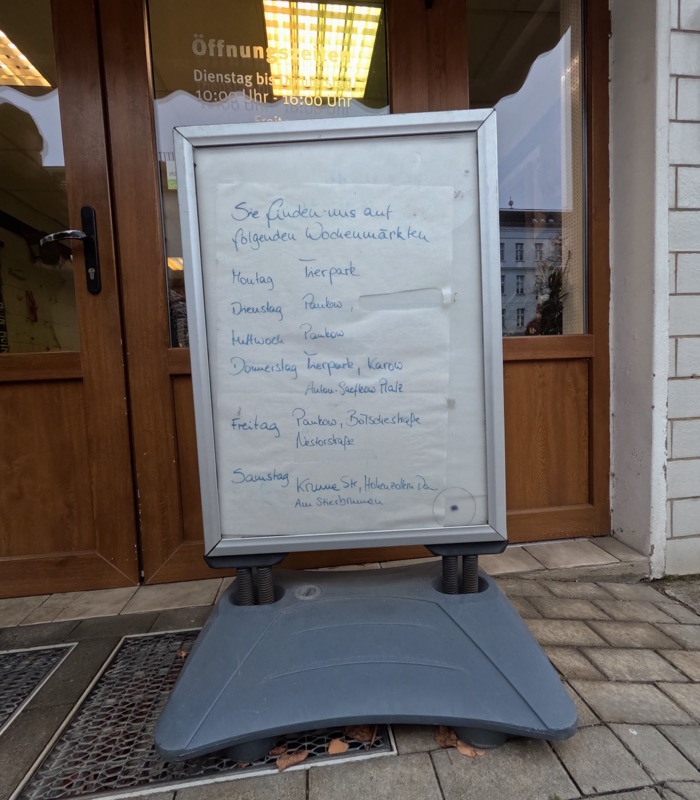 Öffnungszeiten
Dienstag bis
10:00 Uhr - 16:00 Uhr
Freitag
Sie finden uns auf
folgenden Wochenmärkten
Montag Tierpark
Dienstag Pankow,
Mittwoch Pankow
Donnerstag Tierpark, Karow
Anton-Saefkow Platz
Freitag Pankow, Bötschestraße
Nestorstraße
Samstag Krumme Str, Hohenzollern Da
Am Stierbrunnen